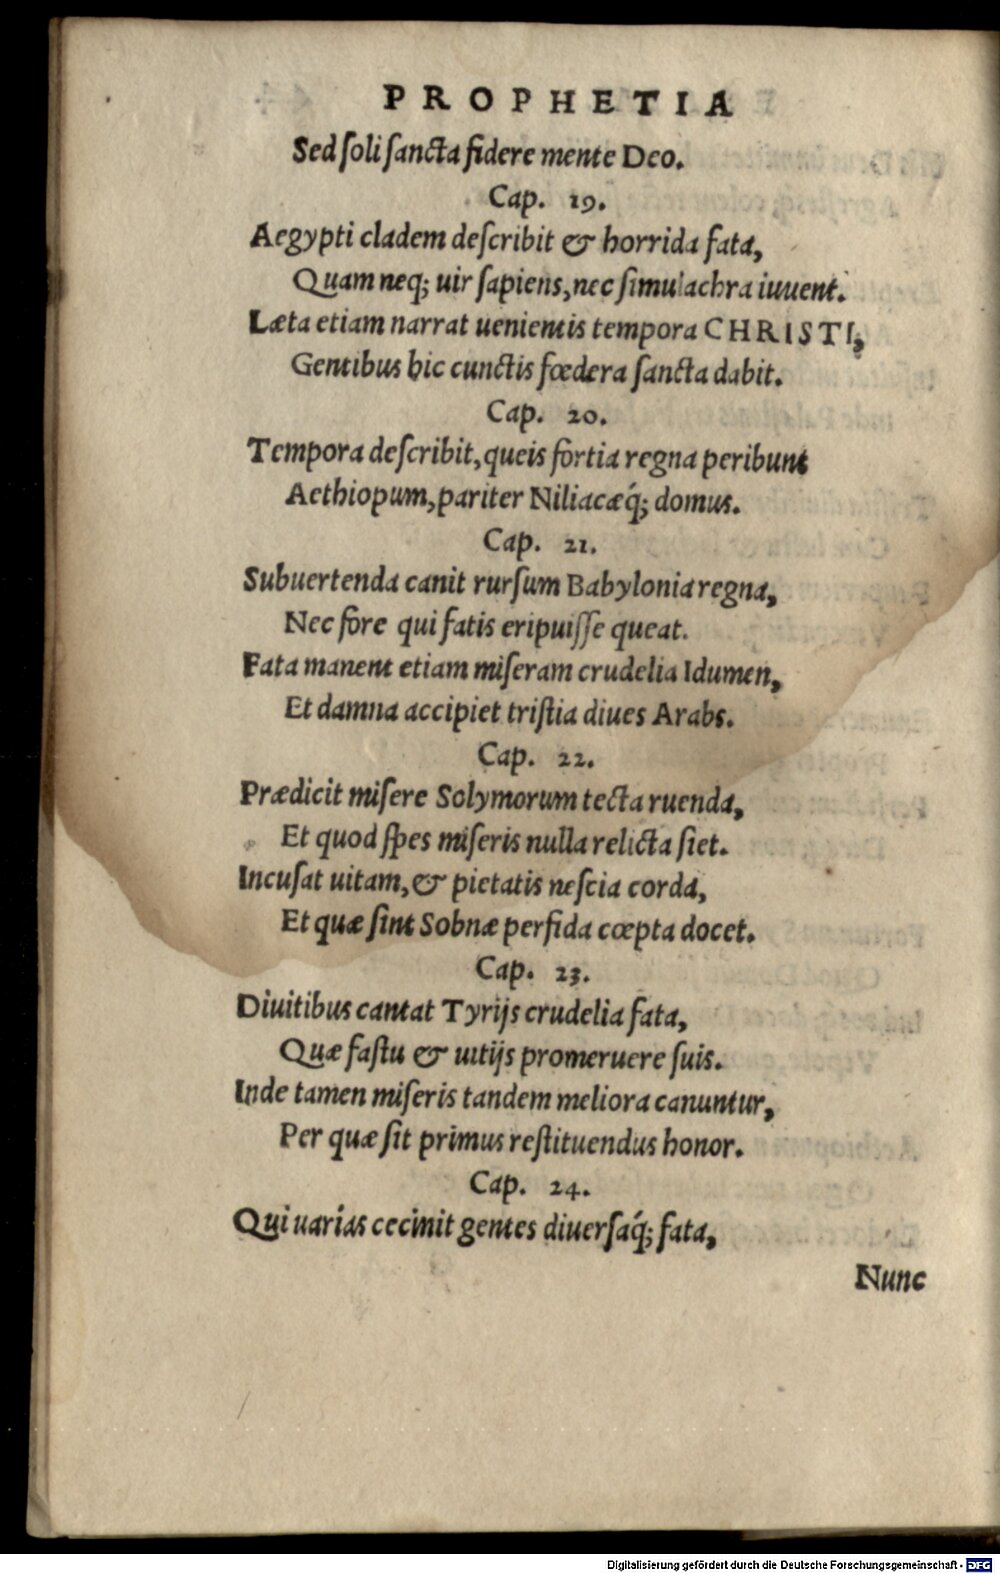 PROPHETIA
Sed ſoli ſancta fidere mente Deo.
Cap. 19.
Aegypti cladem deſcribit & horrida fata,
Quam neq; uir ſapiens, nec ſimulachra iuuent.
Læta etiam narrat uenientis tempora CHRISTI,
Gentibus hic cunctis fœdera ſancta dabit.
Cap. 20.
Tempora deſcribit, queis fortia regna peribunt
Aethiopum, pariter Niliacæq́; domus.
Cap. 21.
Subuertenda canit rurſum Babylonia regna,
Nec fore qui fatis eripuiſſe queat.
Fata manent etiam miſeram crudelia Idumen,
Et damna accipiet triſtia diues Arabs.
Cap. 22.
Prædicit miſere Solymorum tecta ruenda,
Et quod ſpes miſeris nulla relicta ſiet.
Incuſat uitam, & pietatis neſcia corda,
Et quæ ſint Sobnæ perfida cœpta docet.
Cap. 23.
Diuitibus cantat Tyrijs crudelia fata,
Quæ faſtu & uitijs promeruere ſuis.
Inde tamen miſeris tandem meliora canuntur,
Per quæ ſit primus reſtituendus honor.
Cap. 24.
Qui uarias cecinit gentes diuerſaq́; fata,
Nunc
Digitalisierung gefördert durch die Deutsche Forschungsgemeinschaft - DFG